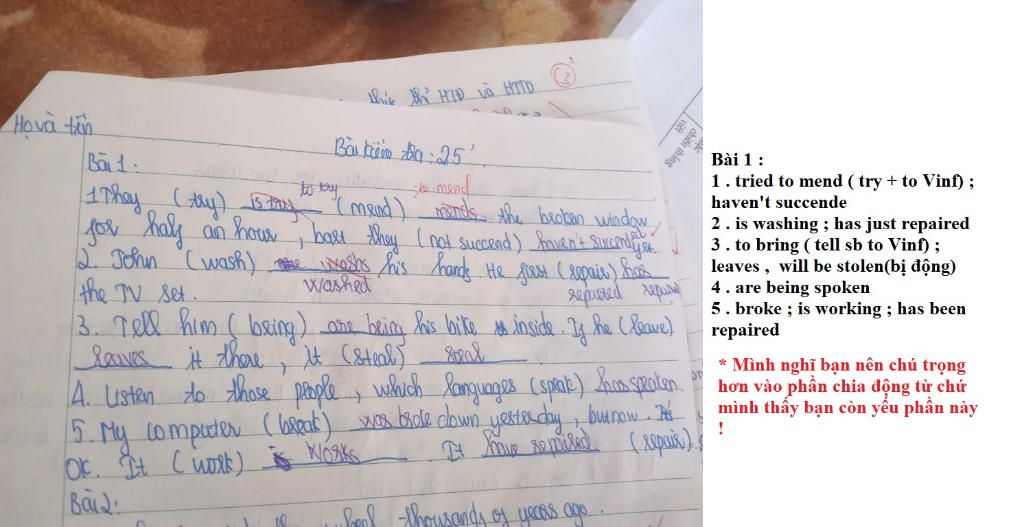 thì HTĐ và HTTD
Họ và tên
Bài kiểm tra : 25'.
Bài 1 :
to try to mend
1 They (try) is try (mend) mends the broken window
for half an hour, but they (not succend) haven't succended yet.
2. John (wash) washs his hands He just (repair) has
washed repaired
the TV set.
3. Tell him (bring) are being his bike inside. If he (leave)
leaves it there, It (steal) steal
4. Listen to those people, which languages (speak) has spoken.
5. My computer (break) was broke down yesterday, but now It's
OK. It (work) works. It have repaired (repair).
Bài 2:
thousands of years ago.
Bài 1 :
1 . tried to mend ( try + to Vinf) ;
haven't succende
2 . is washing ; has just repaired
3 . to bring ( tell sb to Vinf) ;
leaves , will be stolen(bị động)
4 . are being spoken
5 . broke ; is working ; has been
repaired
* Mình nghĩ bạn nên chú trọng
hơn vào phần chia động từ chứ
mình thấy bạn còn yếu phần này
!